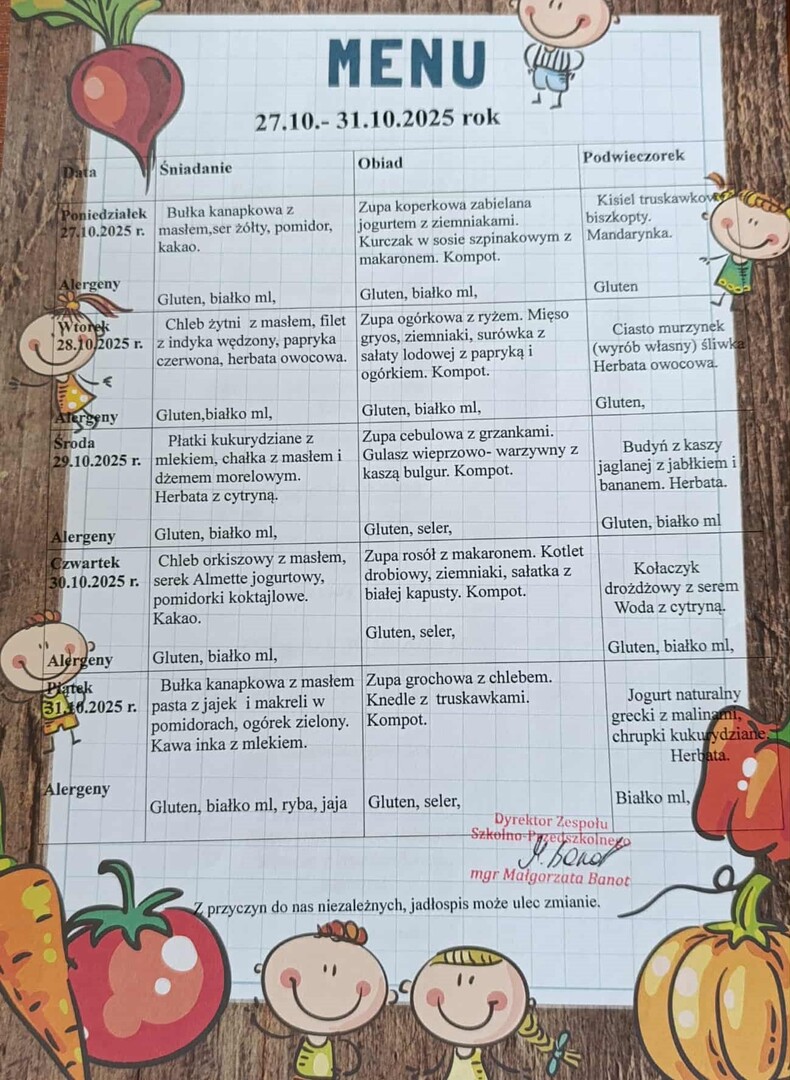 MENU
27.10.- 31.10.2025 rok
Data
Śniadanie
Obiad
Podwieczorek
Poniedziałek
27.10.2025 r.
Bułka kanapkowa z
masłem,ser żółty, pomidor,
kakao.
Zupa koperkowa zabielana
jogurtem z ziemniakami.
Kurczak w sosie szpinakowym z
makaronem. Kompot.
Kisiel truskawkow
biszkopty.
Mandarynka.
Alergeny
Gluten, białko ml,
Gluten, białko ml,
Gluten
Wtorek
28.10.2025 r.
Chleb żytni z masłem, filet
z indyka wędzony, papryka
czerwona, herbata owocowa.
Zupa ogórkowa z ryżem. Mięso
gryos, ziemniaki, surówka z
sałaty lodowej z papryką i
ogórkiem. Kompot.
Ciasto murzynek
(wyrób własny) śliwka
Herbata owocowa.
Alergeny
Gluten,białko ml,
Gluten, białko ml,
Gluten,
Środa
29.10.2025 r.
Płatki kukurydziane z
mlekiem, chałka z masłem i
dżemem morelowym.
Herbata z cytryną.
Zupa cebulowa z grzankami.
Gulasz wieprzowo- warzywny z
kaszą bulgur. Kompot.
Budyń z kaszy
jaglanej z jabłkiem i
bananem. Herbata.
Alergeny
Gluten, białko ml,
Gluten, seler,
Gluten, białko ml
Czwartek
30.10.2025 r.
Chleb orkiszowy z masłem,
serek Almette jogurtowy,
pomidorki koktajlowe.
Kakao.
Zupa rosół z makaronem. Kotlet
drobiowy, ziemniaki, sałatka z
białej kapusty. Kompot.
Kołaczyk
drożdżowy z serem
Woda z cytryną.
Alergeny
Gluten, białko ml,
Gluten, seler,
Gluten, białko ml,
Piątek
31.10.2025 r.
Bułka kanapkowa z masłem
pasta z jajek i makreli w
pomidorach, ogórek zielony.
Kawa inka z mlekiem.
Zupa grochowa z chlebem.
Knedle z truskawkami.
Kompot.
Jogurt naturalny
grecki z malinami,
chrupki kukurydziane.
Herbata.
Alergeny
Gluten, białko ml, ryba, jaja
Gluten, seler,
Białko ml,
Dyrektor Zespołu
Szkolno-Przedszkolnego
M. Banot
mgr Małgorzata Banot
Z przyczyn do nas niezależnych, jadłospis może ulec zmianie.